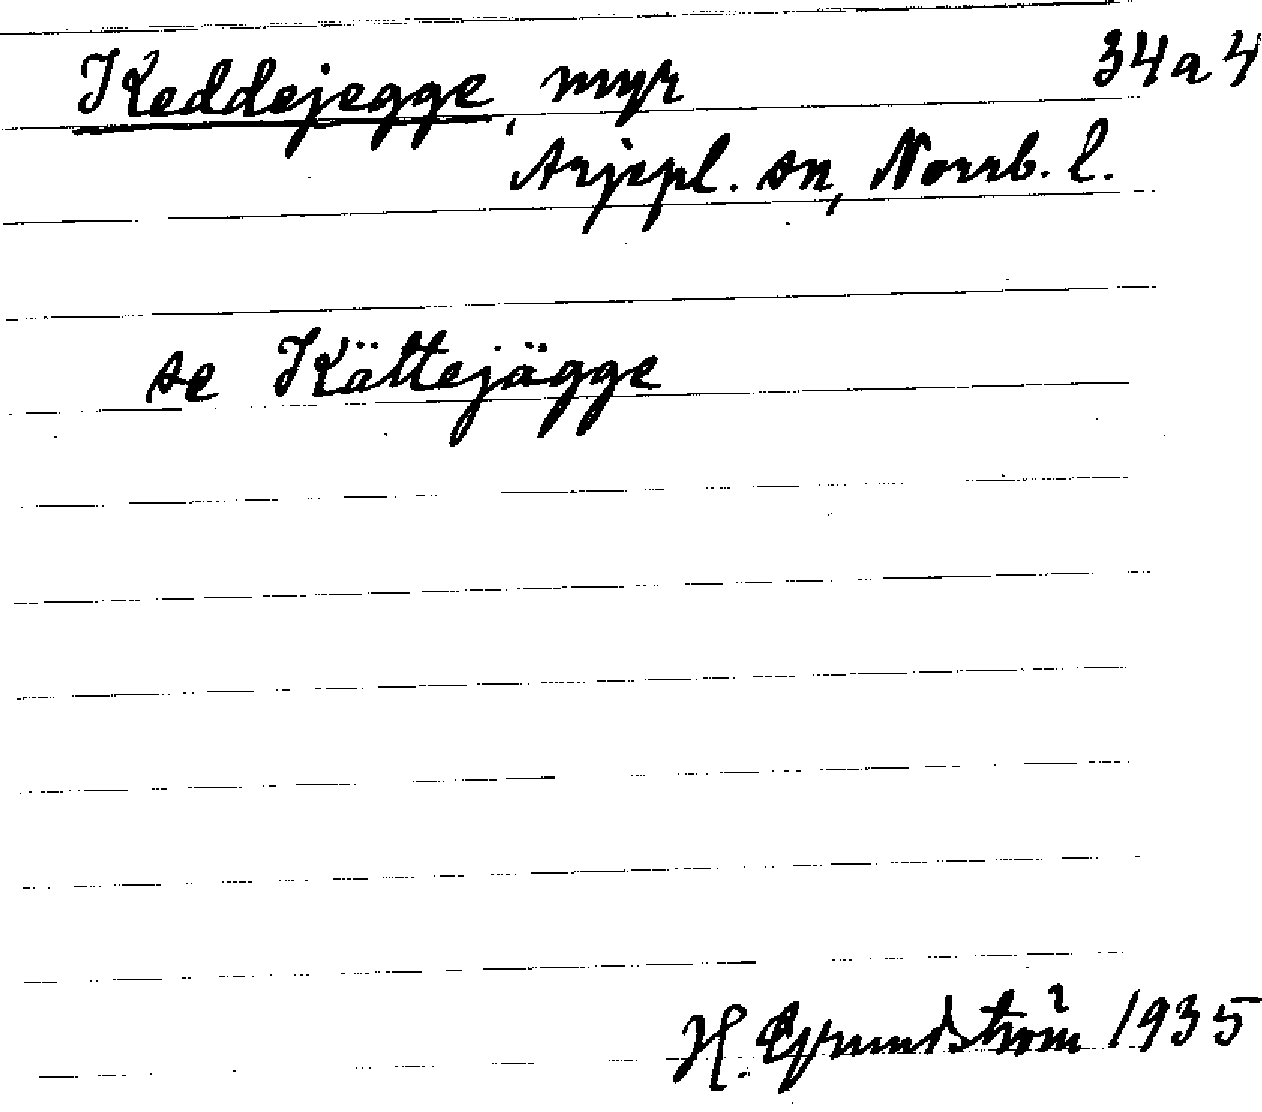 Keddejegge, myr 34a4
Arjepl. sn, Norrb. l.
se Kättejägge
H. Grundström 1935